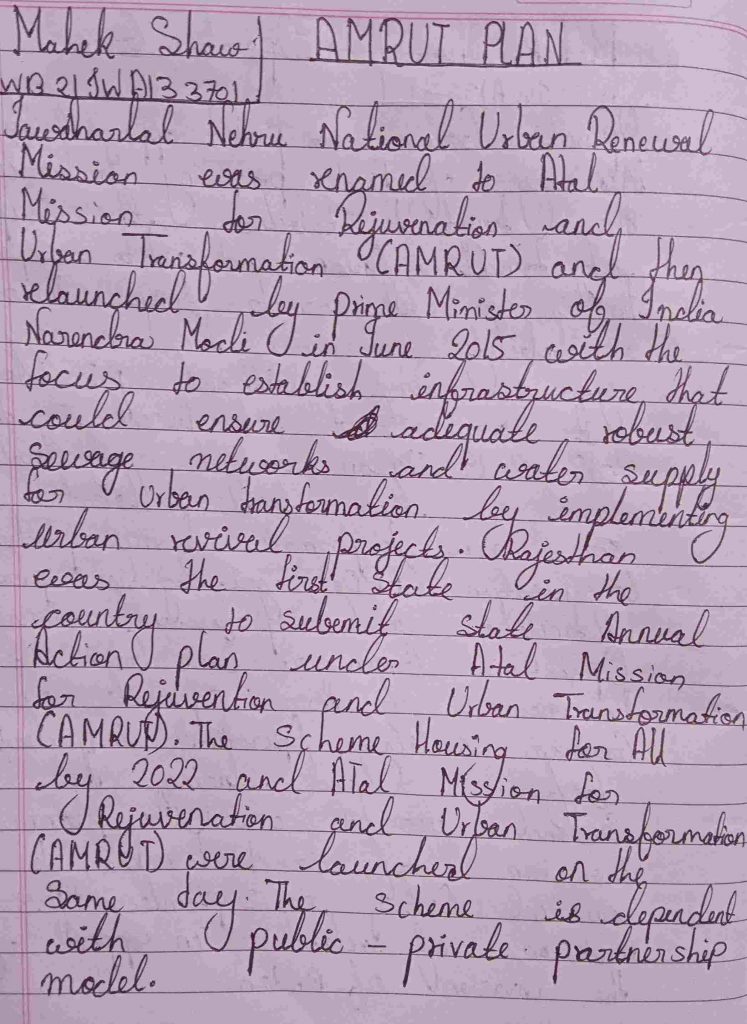 Mahek Shaw AMRUT PLAN
WB21SWA133701
Jawdharlal Nehru National Urban Renewal
Mission was renamed to Atal
Mission for Rejuvenation and
Urban Transformation (AMRUT) and then
relaunched by prime Minister of India
Narendra Modi in June 2015 with the
focus to establish infrastructure that
could ensure adequate robust
sewage networks and water supply
for Urban transformation by implementing
urban revival projects. Rajesthan
was the first state in the
country to submit state Annual
Action plan under Atal Mission
for Rejuvention and Urban Transformation
(AMRUT). The Scheme Housing for All
by 2022 and ATal Mission for
Rejuvenation and Urban Transformation
(AMRUT) were launched on the
Same day. The scheme is dependent
with public - private prartnership
model.